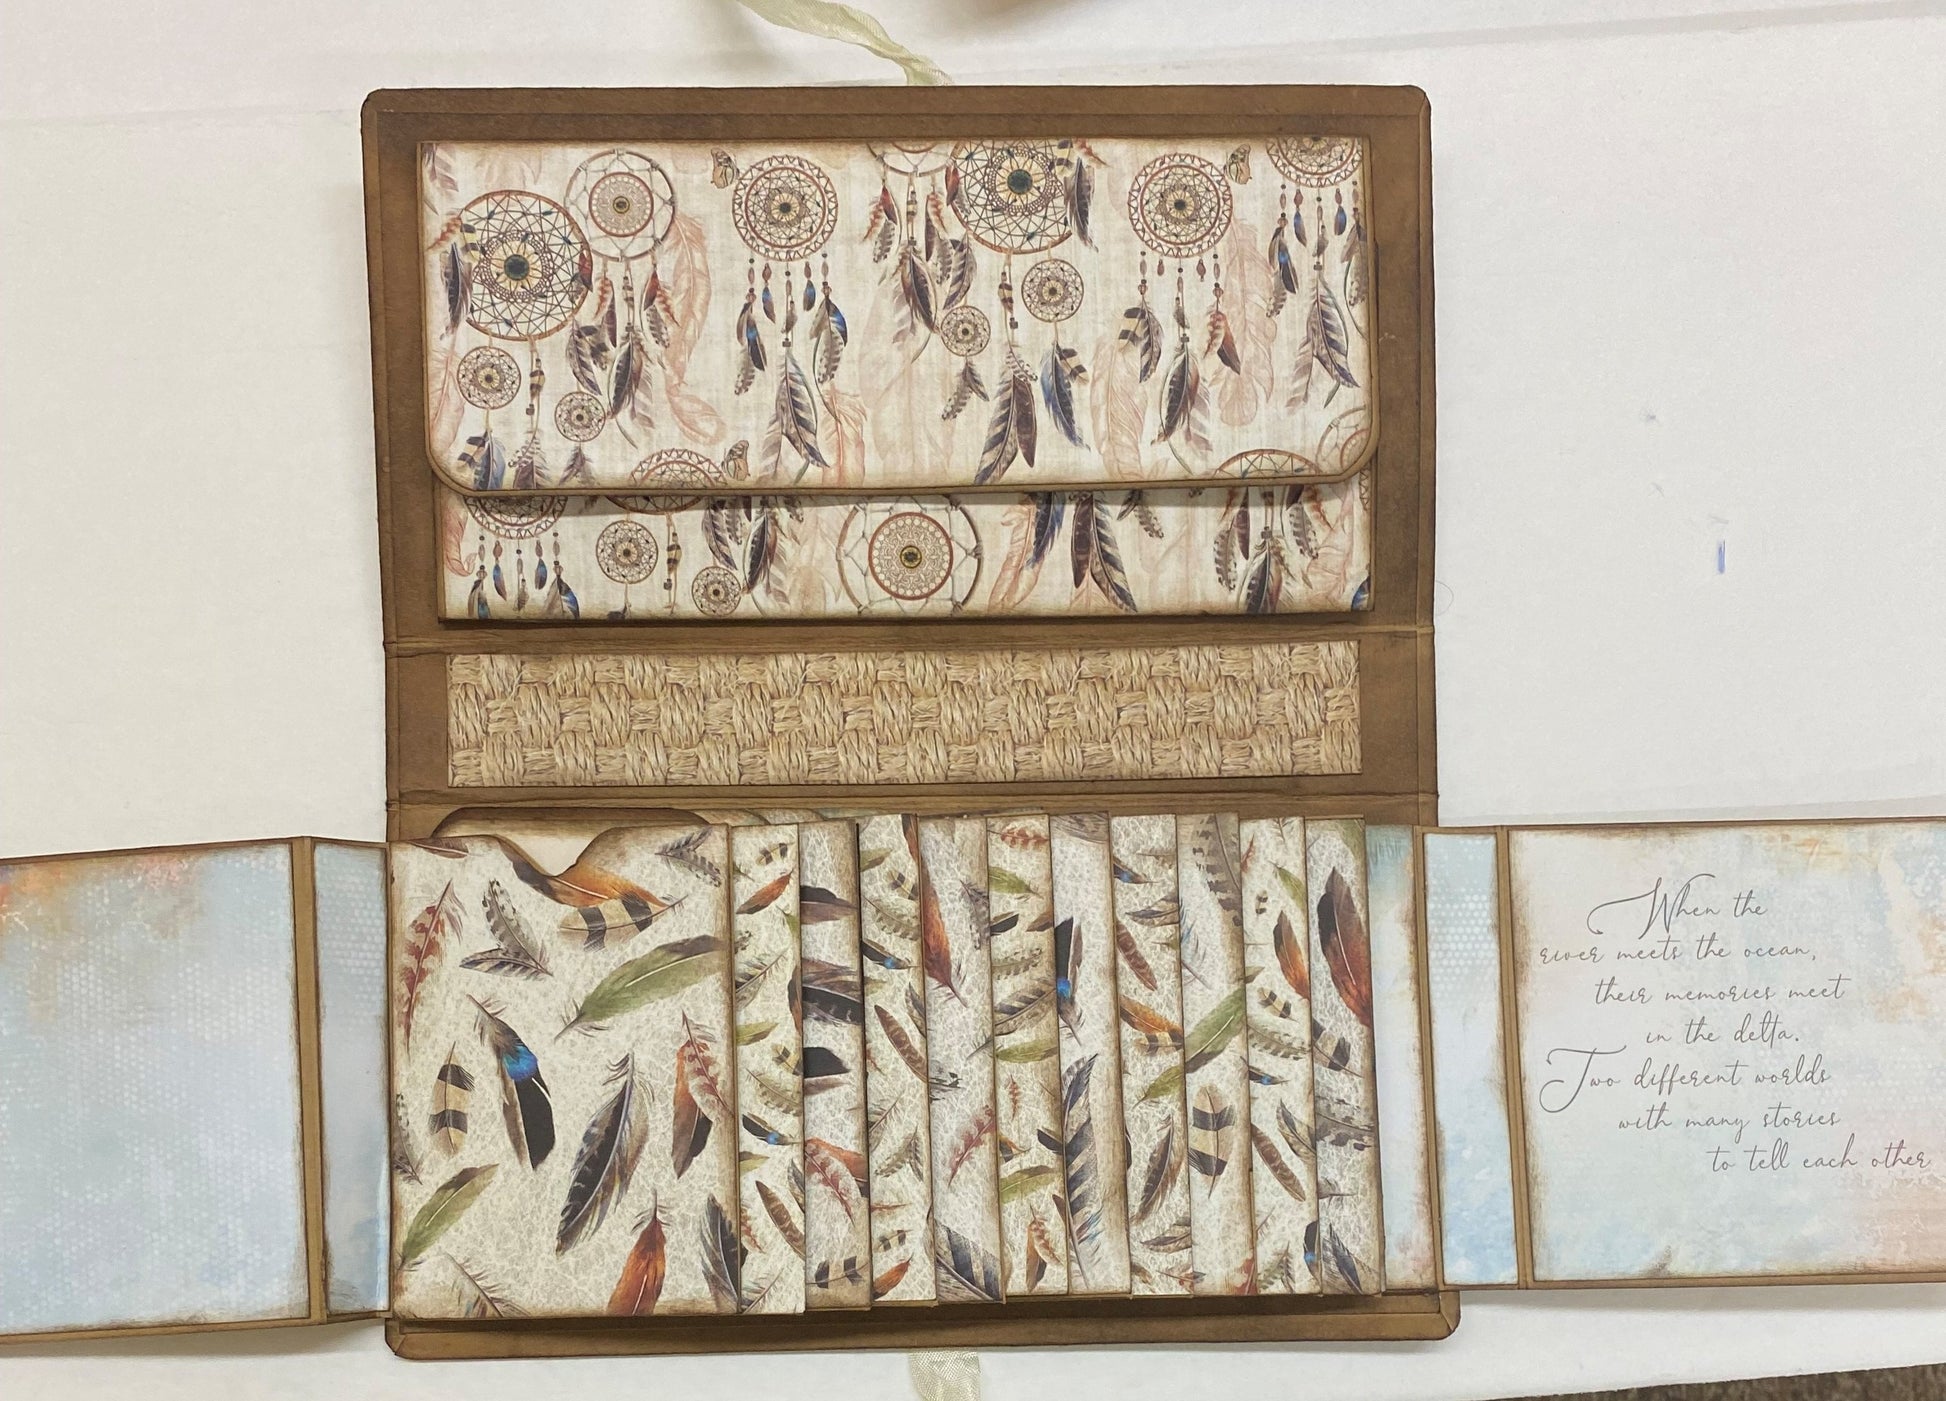 When the
river meets the ocean,
their memories meet
in the delta.
Two different worlds
with many stories
to tell each other